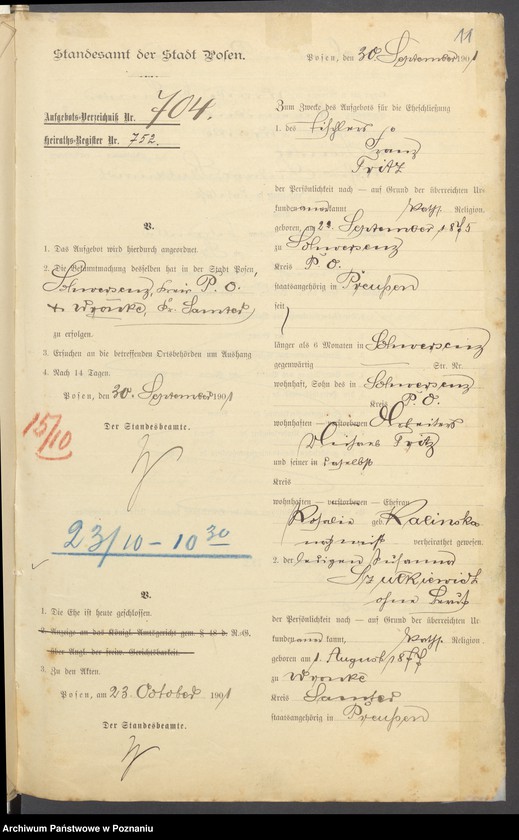 11
Standesamt der Stadt Posen.
Aufgebots-Verzeichniß Nr. 704.
Heiraths-Register Nr. 752.
V.
1. Das Aufgebot wird hierdurch angeordnet.
2. Die Bekanntmachung desselben hat in der Stadt Posen,
Schwersenz, Kreis P. O.
+ Wronke, Kr. Samter
zu erfolgen.
3. Ersuchen an die betreffenden Ortsbehörden um Aushang
4. Nach 14 Tagen.
Posen, den 30. September 1901
Der Standesbeamte.
15/10
23/10 - 10 30
V.
1. Die Ehe ist heute geschlossen.
2. Anzeige an das Königl. Amtsgericht gem. § 48 d. R.-G.
über Angl. der freiw. Gerichtsbarkeit.
3. Zu den Akten.
Posen, am 23. October 1901
Der Standesbeamte.
Posen, den 30. September 1901
Zum Zwecke des Aufgebots für die Eheschließung
1. des Tischlers
Franz
Fritz
der Persönlichkeit nach — auf Grund der überreichten Ur-
kunden anerkannt kath. Religion.
geboren, am 29. September 1875
zu Schwersenz
Kreis P. O.
staatsangehörig in Preußen
seit
länger als 6 Monaten in Schwersenz
gegenwärtig Str. Nr.
wohnhaft, Sohn des in Schwersenz
Kreis P. O.
wohnhaften — verstorbenen Arbeiters
Michael Fritz
und seiner in daselbst
Kreis
wohnhaften — verstorbenen — Ehefrau
Rosalie geb. Kalinska
verheirathet gewesen.
2. der ledigen Susanna
Szutkiewicz
ohne Beruf
der Persönlichkeit nach — auf Grund der überreichten Ur-
kunden kannt, kath. Religion
geboren am 1. August 1877
zu Wronke
Kreis Samter
staatsangehörig in Preußen
Archiwum Państwowe w Poznaniu